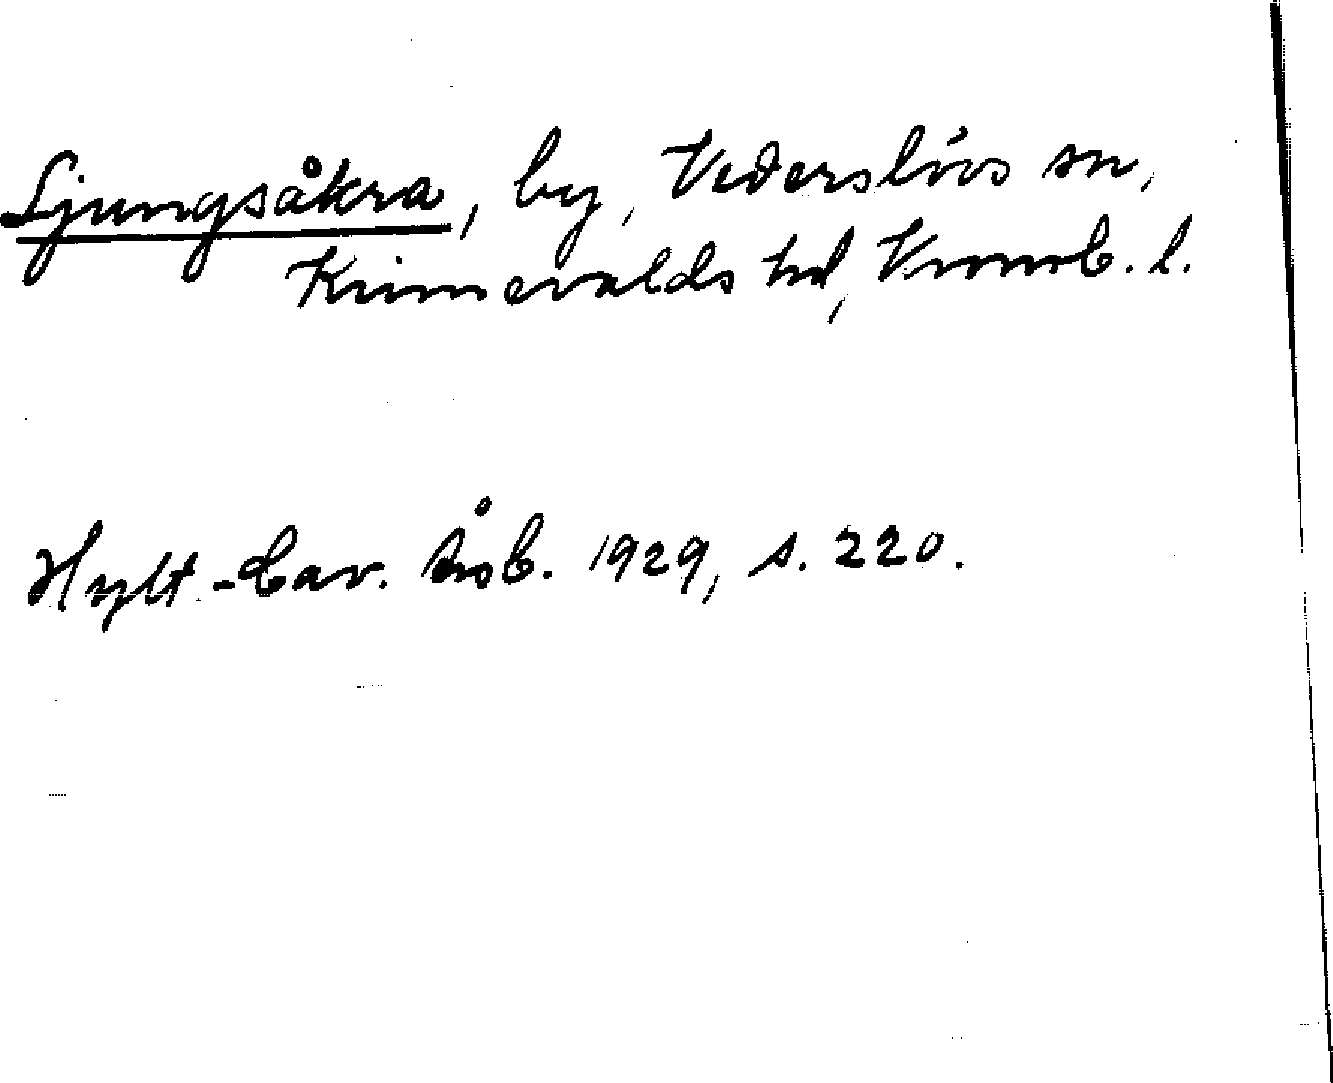 Ljungsåkra, by, Vederslövs sn,
Kinnevalds hd, Kronob. l.
Hylt-Cav. Åsb. 1929, s. 220.